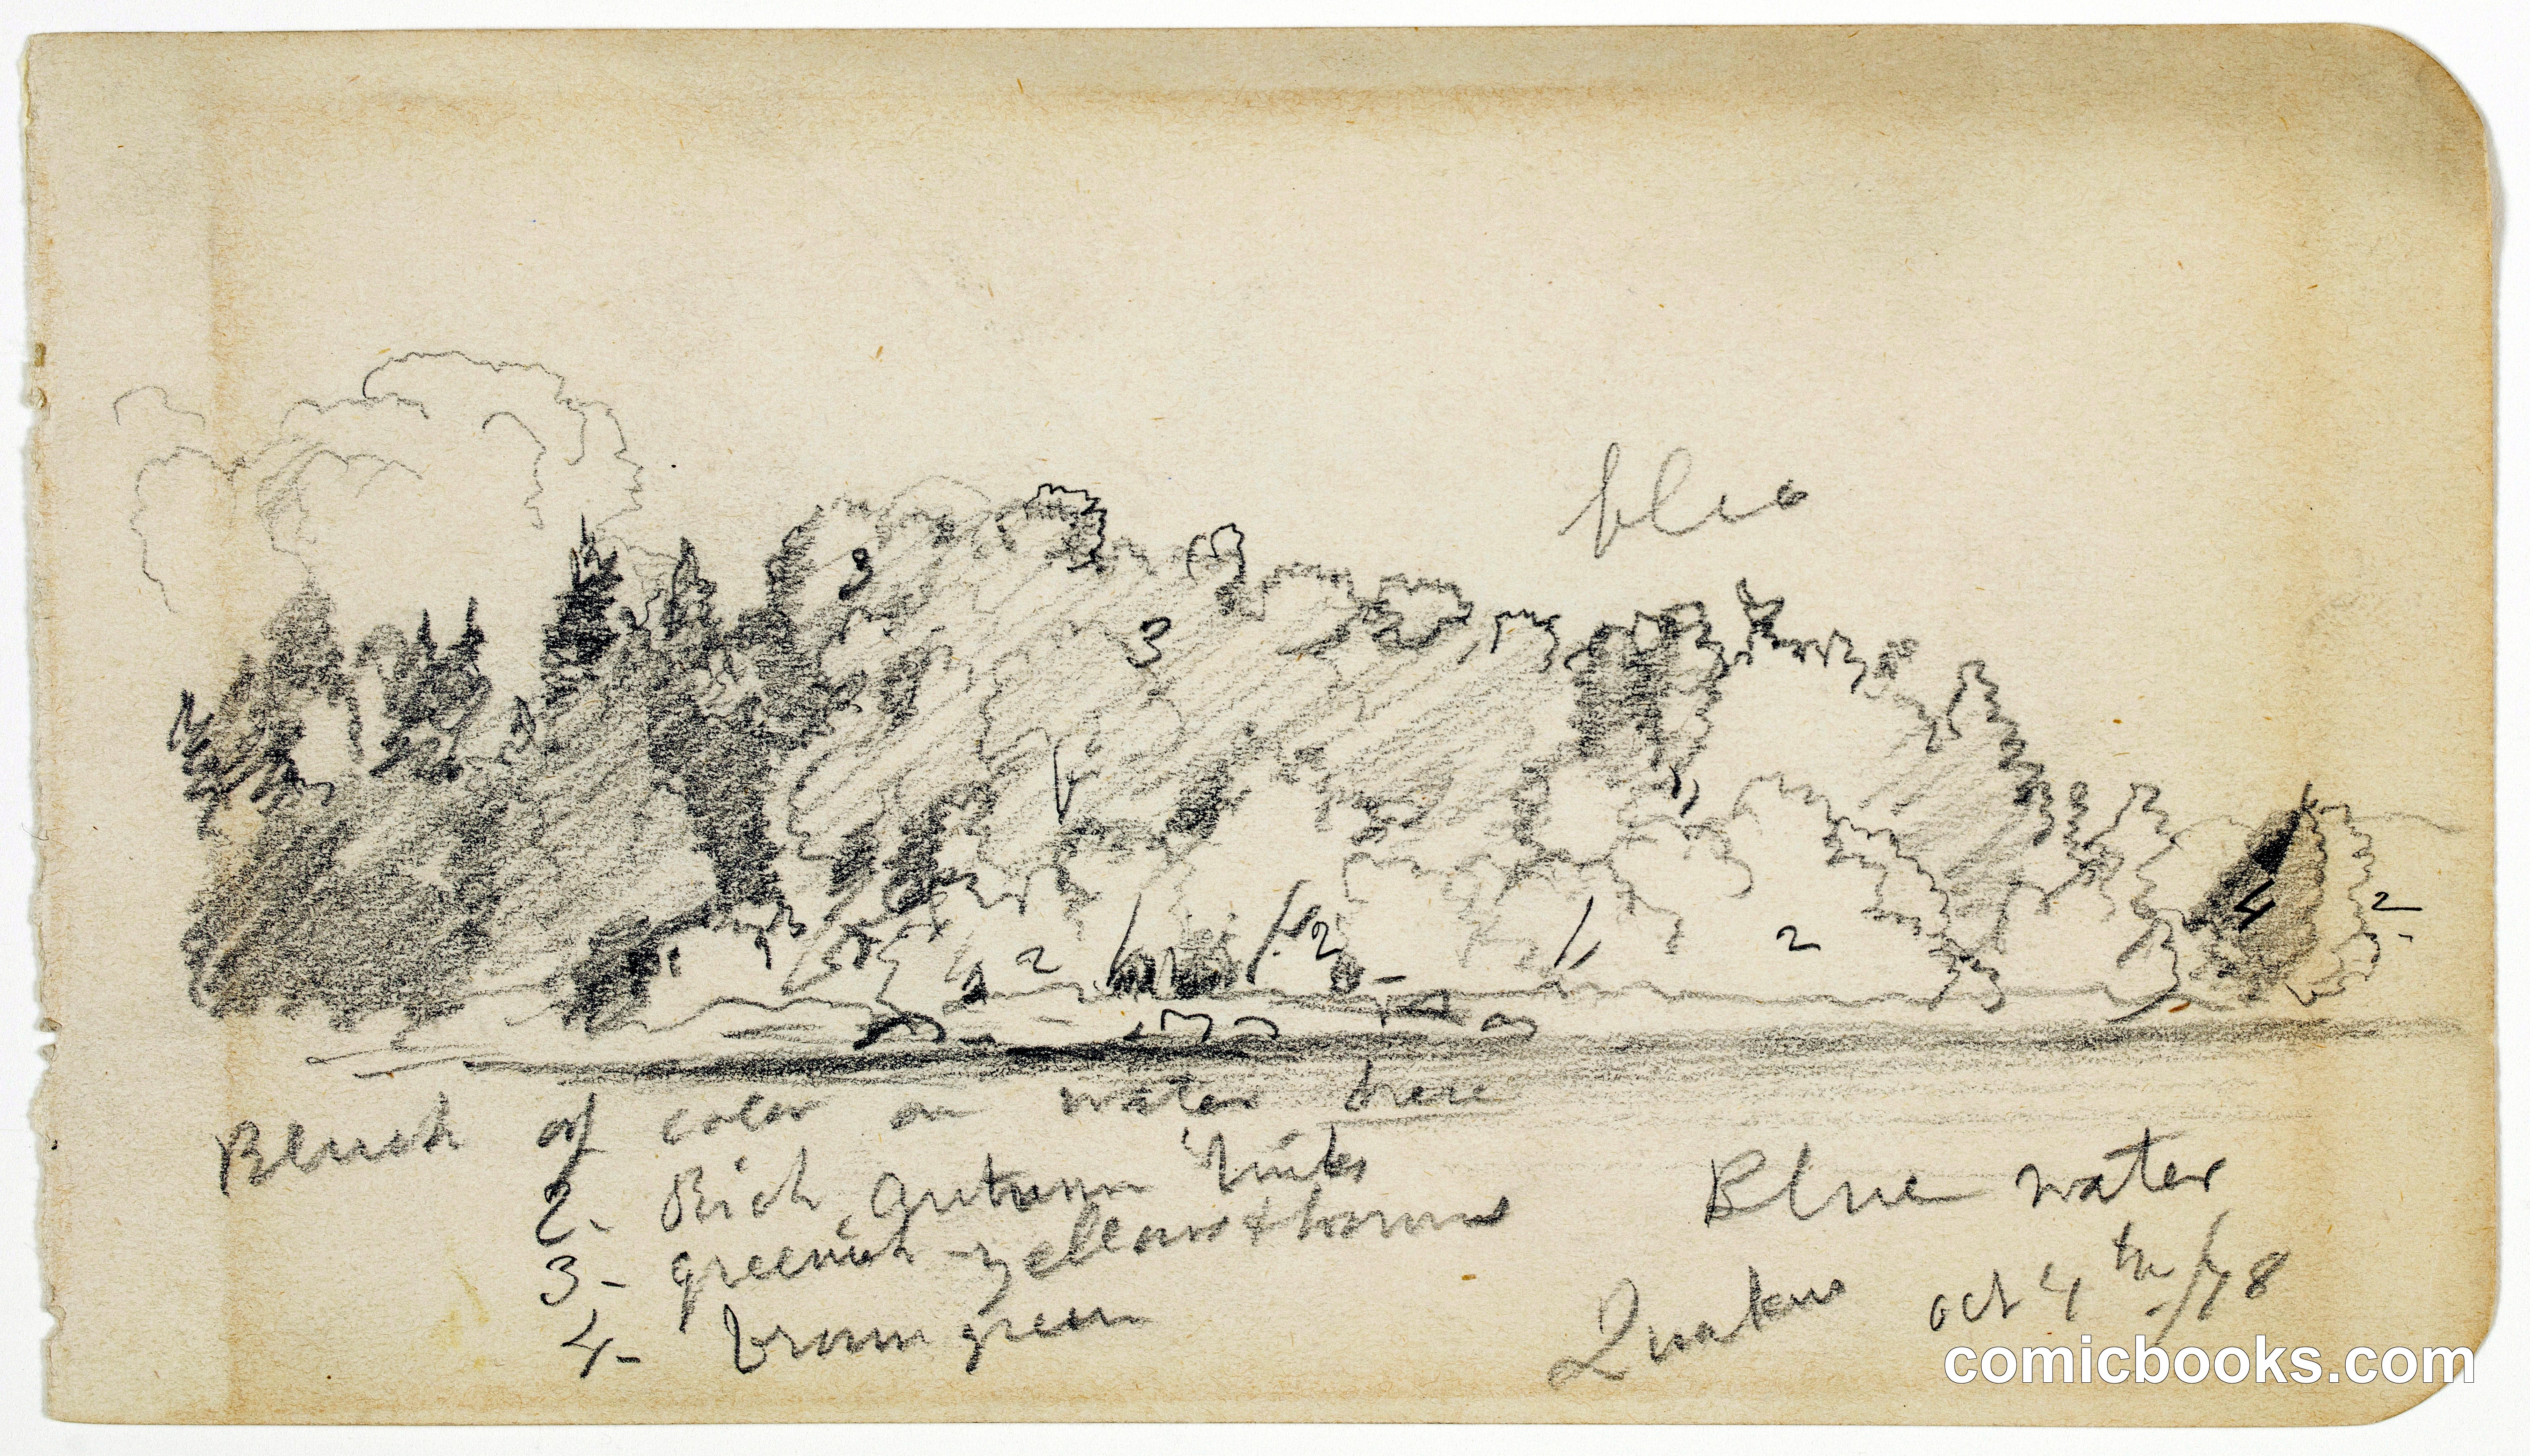 blue
3
3
4
2
2
2
4
2
Blush of color on water here
2- Rich Autumn tints
3- greenish-yellow & browns
4- brown green
Blue water
oct 4th /78
comicbooks.com